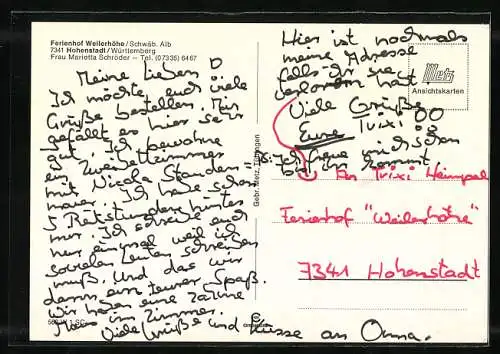 Ferienhof Weilerhöhe/Schwäb. Alb
7341 Hohenstadt/Württemberg
Frau Marietta Schröder – Tel. (07335) 6467
Meine lieben
Ich möchte euch viele
Grüße bestellen. Mir
gefällt es hier sehr
gut. Ich bewohne
ein Zweibettzimmer
mit Nicola Standen-
maier. Ich habe schon
5 Reitstunden hinter
mir. Ich schreibe euch
nur einmal weil ich
sovielen Leuten schreiben
muß. Und das wird
dann ein teurer Spaß.
Wir haben eine zahme
Maus im Zimmer.
Viele Grüße und Küsse an Oma.
Gebr. Metz, Tübingen
Hier ist nochmals
meine Adresse
falls ihr sie
verloren habt
Viele Grüße
Eure Trixi
Ich freue mich schon
bis ihr kommt
Metz
Ansichtskarten
An Trixi
Ferienhof "Weilerhöhe"
7341 Hohenstadt